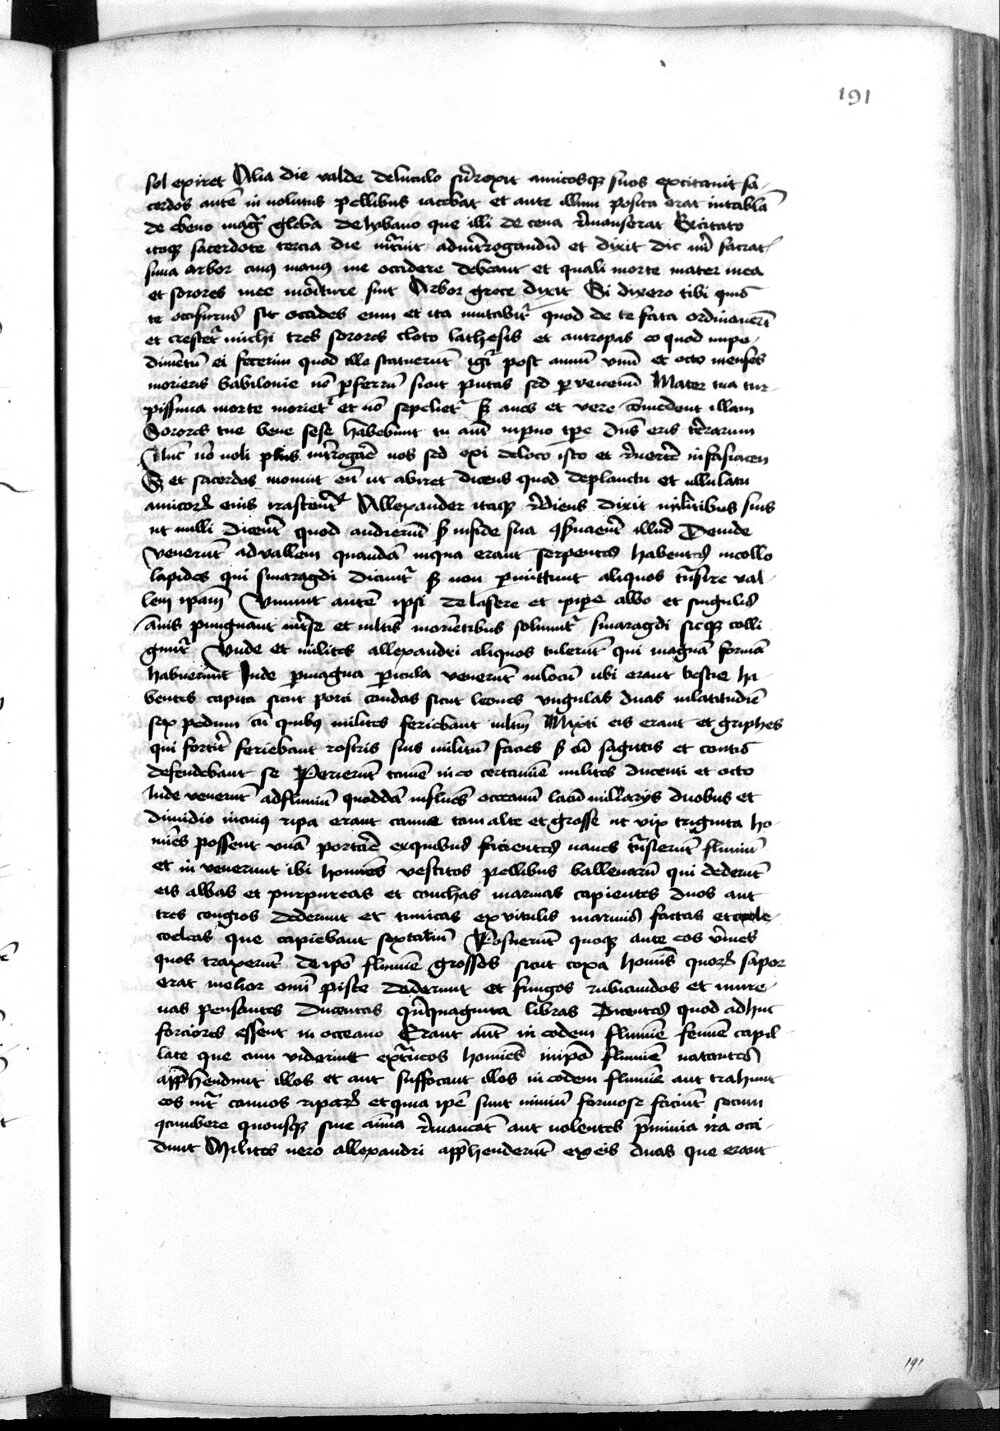 191
sol exiret Alia die valde deluculo surrexit amicosqꝫ suos excitauit sa-
cerdos autē in uolutus pellibus iacebat et ante illum posita erat intablā
de ebeno mag̃ gleba de lybano que illi de cena r̄manserat Excitato
itaqꝫ sacerdote tercia die int̃uit adint̃rogandū et dixit dic m̄ sacrat-
sima arbor cuiꝰ manꝰ me occidere debeant et quali morte mater mea
et sorores mee moriture sint Arbor grece dixit Si dixero tibi quis
te occisurus sit occides eum et ita mutabit̃ quod de te fata ordinauer̄t
et crescet̃ michi tres sorores cloto lathesis et antropas eo quod inpe-
dimētū ei fecerim quod illo statuerūt igr̃ post annū vnū et octo menses
morieris babilonie nō p ferrū sicut putas sed p venenū Mater tua tur-
pissima morte moriet̃ et nō sepeliet̃ sꝫ aues et vere comedent illam
Sorores tue bene sese habebunt tu aut̄ in puo tpe dn̄s eris terrarum
Nūc nō noli plus int̃rogare nos sed exi deloco isto et r̄uerte in fasiacen
Sꝫ et sacerdos monuit eū ut abiret dicens quod deplanctu et ullulatu
amicorꝫ eius irascerent̃ Allexander itaqꝫ r̄diens dixit militibus suis
ut nulli dicerēt quod audierūt sꝫ infide sua cōseruarent illud Deinde
venerūt ad vallem quandā inqua erant serpentes habentes incollo
lapides qui smaragdi dicunt̃ sꝫ non p̄mittunt aliquos t̃nsire val-
lem ip̄am Viuunt autē ipsi de lasere et pipe albo et singulis
annis pungnant int̃ se et multis morientibus soluunt̃ smaragdi sicqꝫ colli
gunt̃ Unde et milites allexandri aliquos tulerūt qui magnā formā
habuerunt Inde p magna picula venerūt inlocū ubi erant bestie ha-
bentes caputa sicut porci caudas sicut leones vngulas duas in latitudiē
sex pedum cū quibꝰ milites feriebant multū Mixti eis erant et griphes
qui fortit̃ feriebant rostris suis militū facies sꝫ cū sagittis et contis
defendebant se Perierūt tamē in eo certamīe milites ducenti et octo
Inde venerūt ad fluuiū quoddā influēs occeanū latū milliarijs duobus et
dimidio in cuiꝰ ripa erant canne tam alte et grosse ut vix triginta ho-
mīes possent vnā portare ex quibus facientes naues t̃nsierūt fluuiū
et in venerunt ibi homīes vestitos pellibus ballenarū qui dederūt
eis albas et purpureas et conchas marinas capientes duos aut
tres congios dederunt et tunicas ex vitulis marinis factas et cocle-
cocleas que capiebant sextariū Posuerūt quoqꝫ ante eos v̄mes
quos traxerūt de ip̄o flumīe grossos sicut coxa homīs quorꝫ sapor
erat melior omī pisce dederunt et fungos rubicundos et mure-
nas pensantes ducentas quīquaginta libras Dicentes quod adhuc
forciores essent in occeano Erant aut̄ in eodem flumīe femīe capil
late que cum viderunt ext̃neos homīes in ip̄o flumīe natantes
app̄hendunt illos et aut suffocant illos in eodem flumīe aut trahunt
eos int̃ cannos riparꝫ et quia ip̄e sunt nimiū formose faciūt secum
qcumbere quousqꝫ sine aīma r̄maneāt aut nolentes p̄ nimia ira occi-
dunt Milites uero allexandri app̄henderūt ex eis duas que erant
191